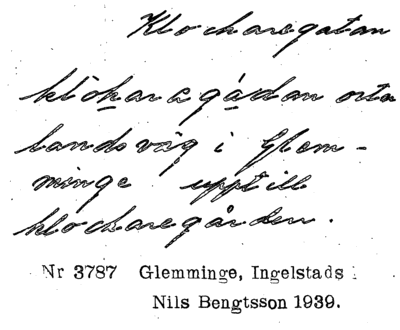 Klockaregatan
klo̱kara gá̱rdan
landsväg i Glem-
minge upp till
klockaregården.
Nr 3787 Glemminge, Ingelstads
Nils Bengtsson 1939.